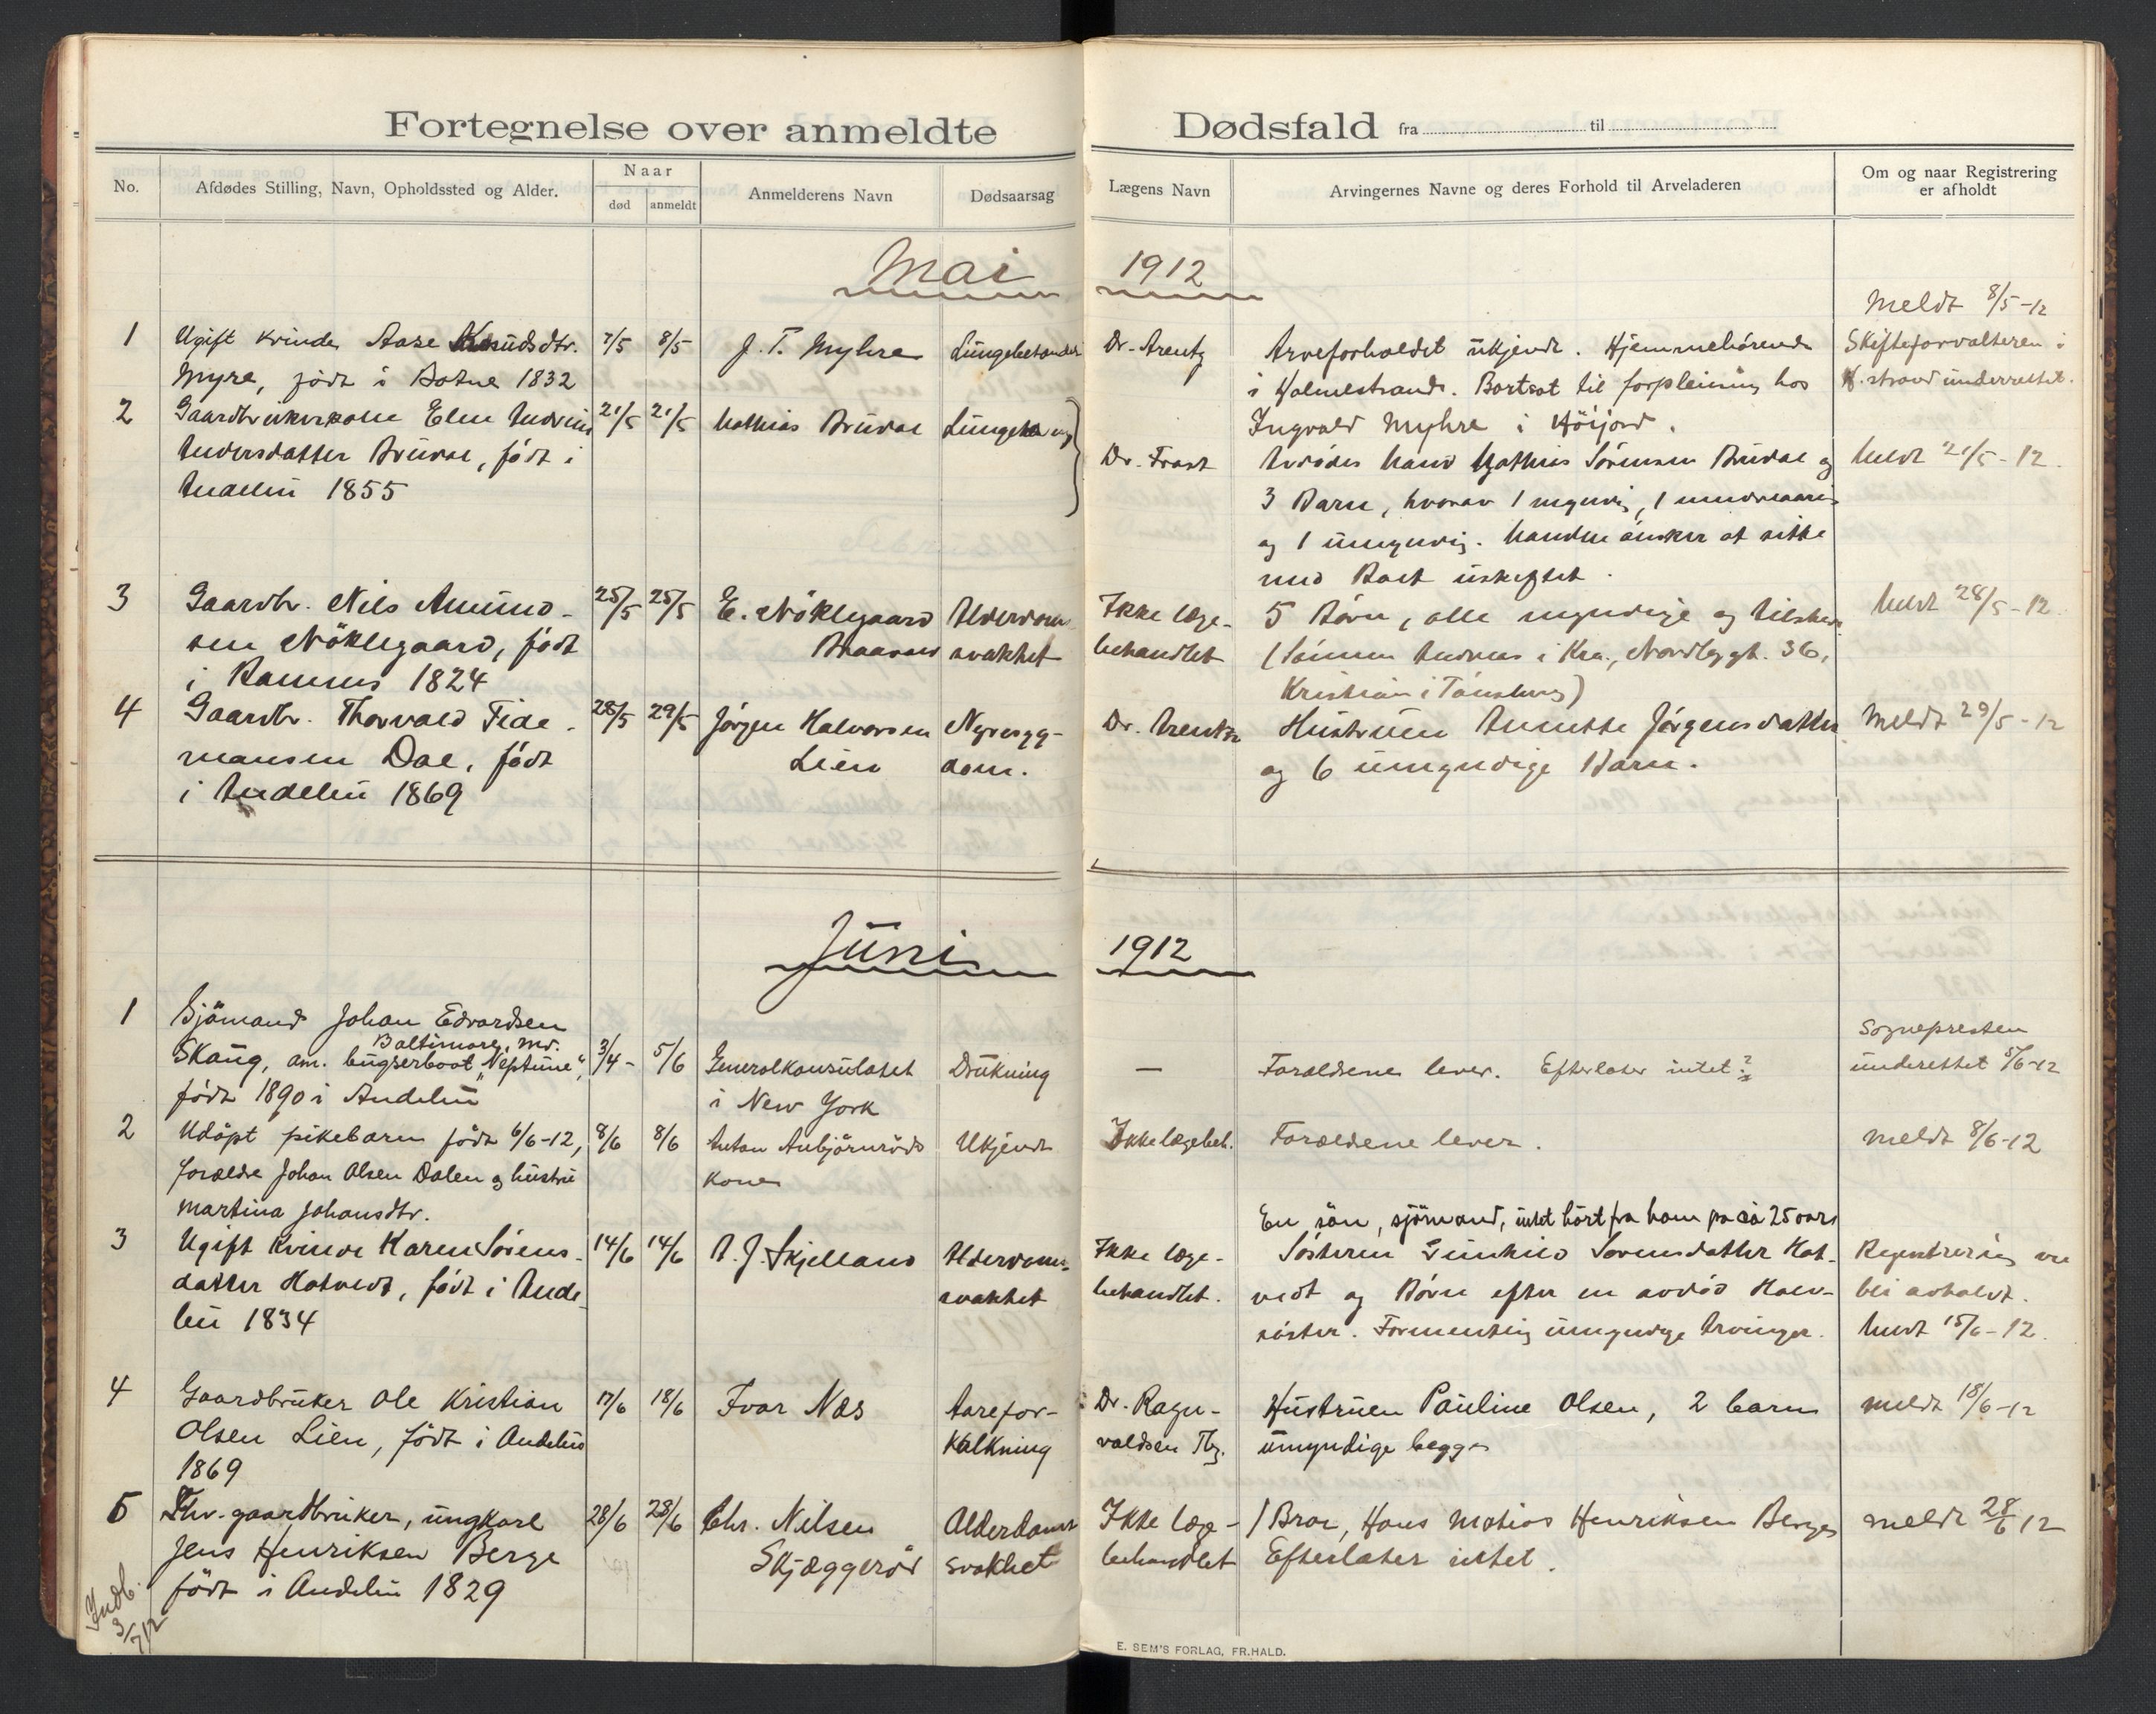 Fortegnelse over anmeldte Dødsfald fra til
No.
Afdødes Stilling, Navn, Opholdssted og Alder.
Naar
død
anmeldt
Anmelderens Navn
Dødsaarsag
Lægens Navn
Arvingernes Navne og deres Forhold til Arveladeren
Om og naar Registrering
er afholdt
Mai 1912
1
Ugift kvinde Aase Knudsdtr.
Myre, født i Botne 1832
7/5
8/5
J. T. Myhre
Dr. Arentz
Arveforholdet ukjendt. Hjemmehørende
i Holmestrand. Bortsat til forpleining hos
Ingvald Myhre i Höijord.
Meldt 8/5-12
Skifteforvalteren i
H.strand underrettet.
2
Gaardbrukerkone Elen Andrine
Andersdatter Brudal, født i
Andebu 1855
21/5
21/5
Mathias Brudal
Dr. Frost
Avdødes Mand Mathias Sörensen Brudal og
3 Barn, hvorav 1 myndig, 1 mindreaarig
og 1 umyndig. Manden önsker at sitte
med Boet uskiftet.
Meldt 21/5-12.
3
Gaardbr. Nils Amund-
sen Nöklegaard, född
i Ramnes 1824
25/5
25/5
E. Nöklegaard
Braavold
Alderdoms
svakhet
Ikke læge-
behandlet
5 Börn, alle myndige og tilstede
(Sönnen Andreas i Kra., Nordbygt. 36,
Kristian i Tönsberg)
Meldt 28/5-12.
4
Gaardbr. Thorvald Tide-
mansen Dal, född
i Andebu 1869
28/5
29/5
Jörgen Halvorsen
Lien
Nyresyg-
dom.
Dr. Arentz
Hustruen Annette Jörgensdatter
og 6 umyndige Barn.
Meldt 29/5-12
Juni 1912
1
Sjömand Johan Edvardsen
Baltimore, Md.
Skaug, am. bugserboat "Neptune",
född 1890 i Andebu
3/4-
5/6
Generalkonsulatet
i New York
Drukning
—
Forældrene lever. Efterlater intet?
Sognepresten
underettet 5/6-12
2
Udöpt pikebarn född 6/6-12,
forældre Johan Olsen Dalen og hustru
Martina Johansdtr.
8/6
8/6
Anton Anbjörnröds
kone
Ukjendt
Ikke lægebeh.
Forældrene lever.
meldt 8/6-12
3
Ugift kvinde Karen Sörens-
datter Hotvedt, född i Ande-
bu 1834
14/6
14/6
A. J. Skjelland
Alderdoms-
svakhet
Ikke læge-
behandlet.
En sön, sjömand, intet hört fra ham på ca 25 aar
Sösteren Gunhild Sörensdatter Hot-
vedt og Börn efter en avdöd Halv-
söster. Formentlig umyndige Arvinger.
Registrering vil
bli avholdt.
Meldt 15/6-12.
4
Gaardbruker Ole Kristian
Olsen Lien, född i Andebu
1869
17/6
18/6
Ivar Næs
Aarefor-
kalkning
Dr. Ragn-
valdsen Tbg.
Hustruen Pauline Olsen, 2 barn
umyndige begge
meldt 18/6-12
5
Fhv. gaardbruker, ungkarl
Jens Henriksen Berge
född i Andebu 1829
28/6
28/6
Chr. Nilsen
Skjæggeröd
Alderdoms
svakhet
Ikke læge-
behandlet
1 Bror, Hans Mathias Henriksen Berge
Efterlater intet.
meldt 28/6 12
Indb.
3/7 12
E. SEM'S FORLAG, FR.HALD.